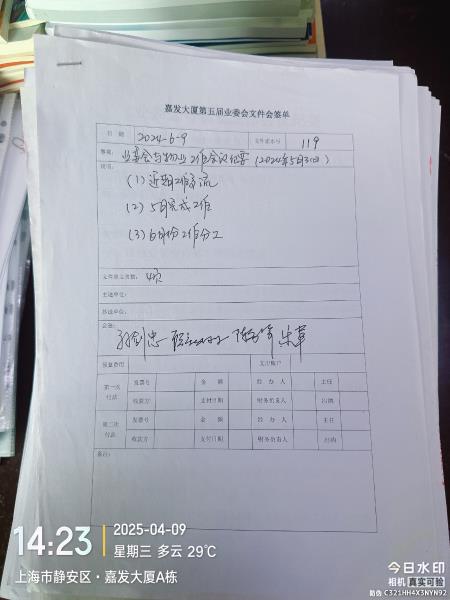 嘉发大厦第五届业委会文件会签单
日期 2024-6-9 文件流水号 119
事项: 业委会与物业工作会议纪要(2024年5月31日)
说明:
(1)近期工作交流
(2)5月完成工作
(3)6月份工作分工
文件原文页数: 4页
主送单位:
抄送单位:
会签:
预算费用 支出账户
第一次付款 发票号 金额 经办人 主任
收款方 支付日期 财务负责人 出纳
第二次付款 发票号 金额 经办人 主任
收款方 支付日期 财务负责人 出纳
备注:
14:23 2025-04-09
星期三 多云 29℃
上海市静安区·嘉发大厦A栋
今日水印
相机 真实可验
防伪 C321HH4X3NYN92